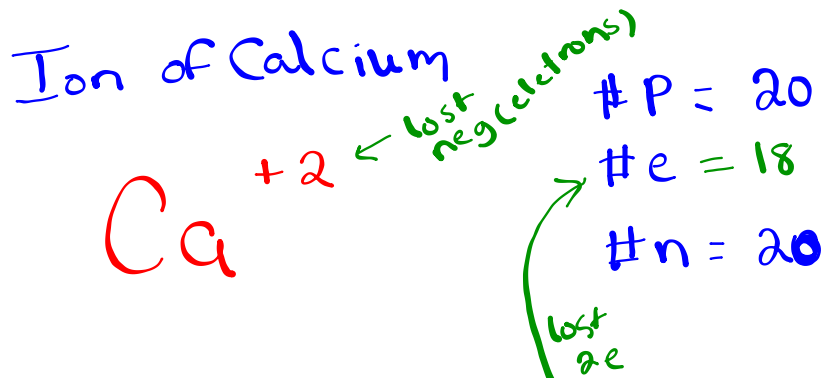 Ion of Calcium
Ca +2
← lost
neg(eletrons)
#P = 20
#e = 18
#n = 20
lost
2e